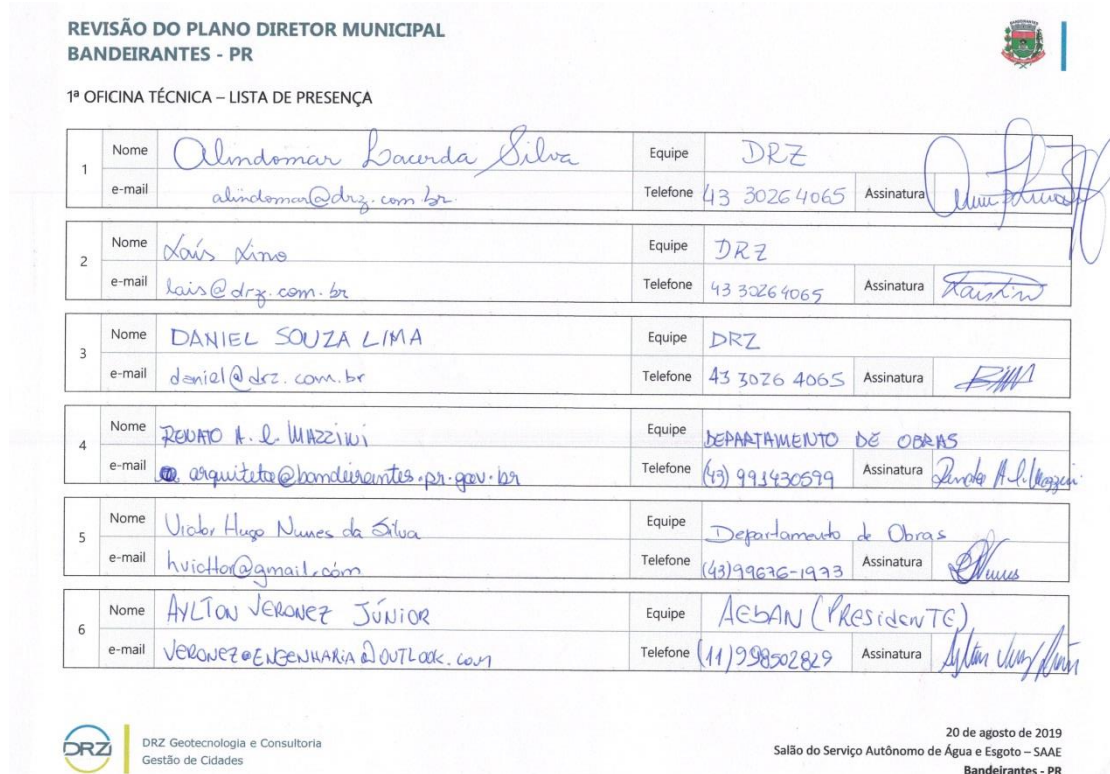 REVISÃO DO PLANO DIRETOR MUNICIPAL
BANDEIRANTES - PR
1ª OFICINA TÉCNICA – LISTA DE PRESENÇA
1 Nome Alindomar Lacerda Silva Equipe DRZ
e-mail alindomar@drz.com.br. Telefone 43 30264065 Assinatura
2 Nome Laís Lino Equipe DRZ
e-mail lais@drz.com.br Telefone 43 30264065 Assinatura
3 Nome DANIEL SOUZA LIMA Equipe DRZ
e-mail daniel@drz.com.br Telefone 43 3026 4065 Assinatura
4 Nome RENATO A. L. MAZZINI Equipe DEPARTAMENTO DE OBRAS
e-mail arquiteto@bandeirantes.pr.gov.br Telefone (43) 991430599 Assinatura Renato A. L. Mazzini
5 Nome Victor Hugo Nunes da Silva Equipe Departamento de Obras
e-mail hvicttor@gmail.com Telefone (43)99676-1973 Assinatura
6 Nome AYLTON VERONEZ JÚNIOR Equipe AEBAN (PRESIDENTE)
e-mail VERONEZ@ENGENHARIA@OUTLOOK.COM Telefone (11)998502829 Assinatura
DRZ
DRZ Geotecnologia e Consultoria
Gestão de Cidades
20 de agosto de 2019
Salão do Serviço Autônomo de Água e Esgoto – SAAE
Bandeirantes - PR